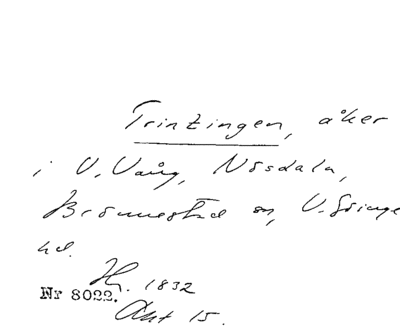 Trintzingen, åker
i V. Vång, Nösdala,
Brönnestad sn, V. Göinge
hd.
H. 1832
Nr 8022.
Akt 15.